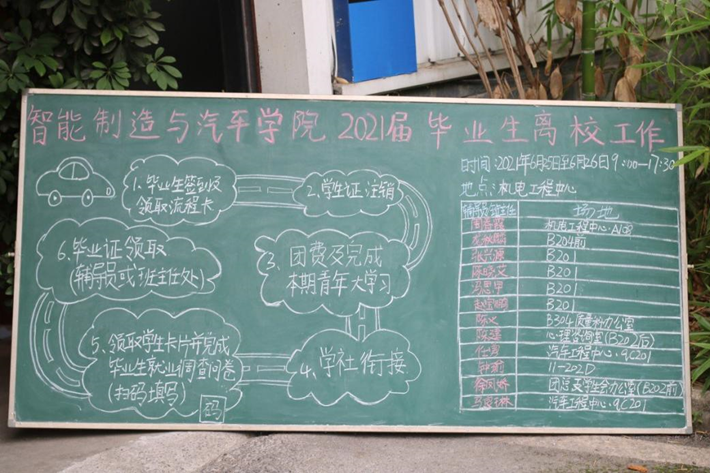 智能制造与汽车学院2021届毕业生离校工作
时间:2021年6月25日至6月26日9:00—17:30
地点:机电工程中心
1.毕业生签到及
领取流程卡
2.学生证注销
3.团费及完成
本期青年大学习
4.学社衔接
5.领取学生卡片并完成
毕业生就业调查问卷
(扫码填写)
码
6.毕业证领取
(辅导员或班主任处)
辅导员/班主任 场地
机电工程中心·A108
B204前
B201
B201
B201
B201
B304质量办公室
心理咨询室(B202后)
汽车工程中心·9C201
11-202D
团总支学生会办公室(B202前)
汽车工程中心·9C201